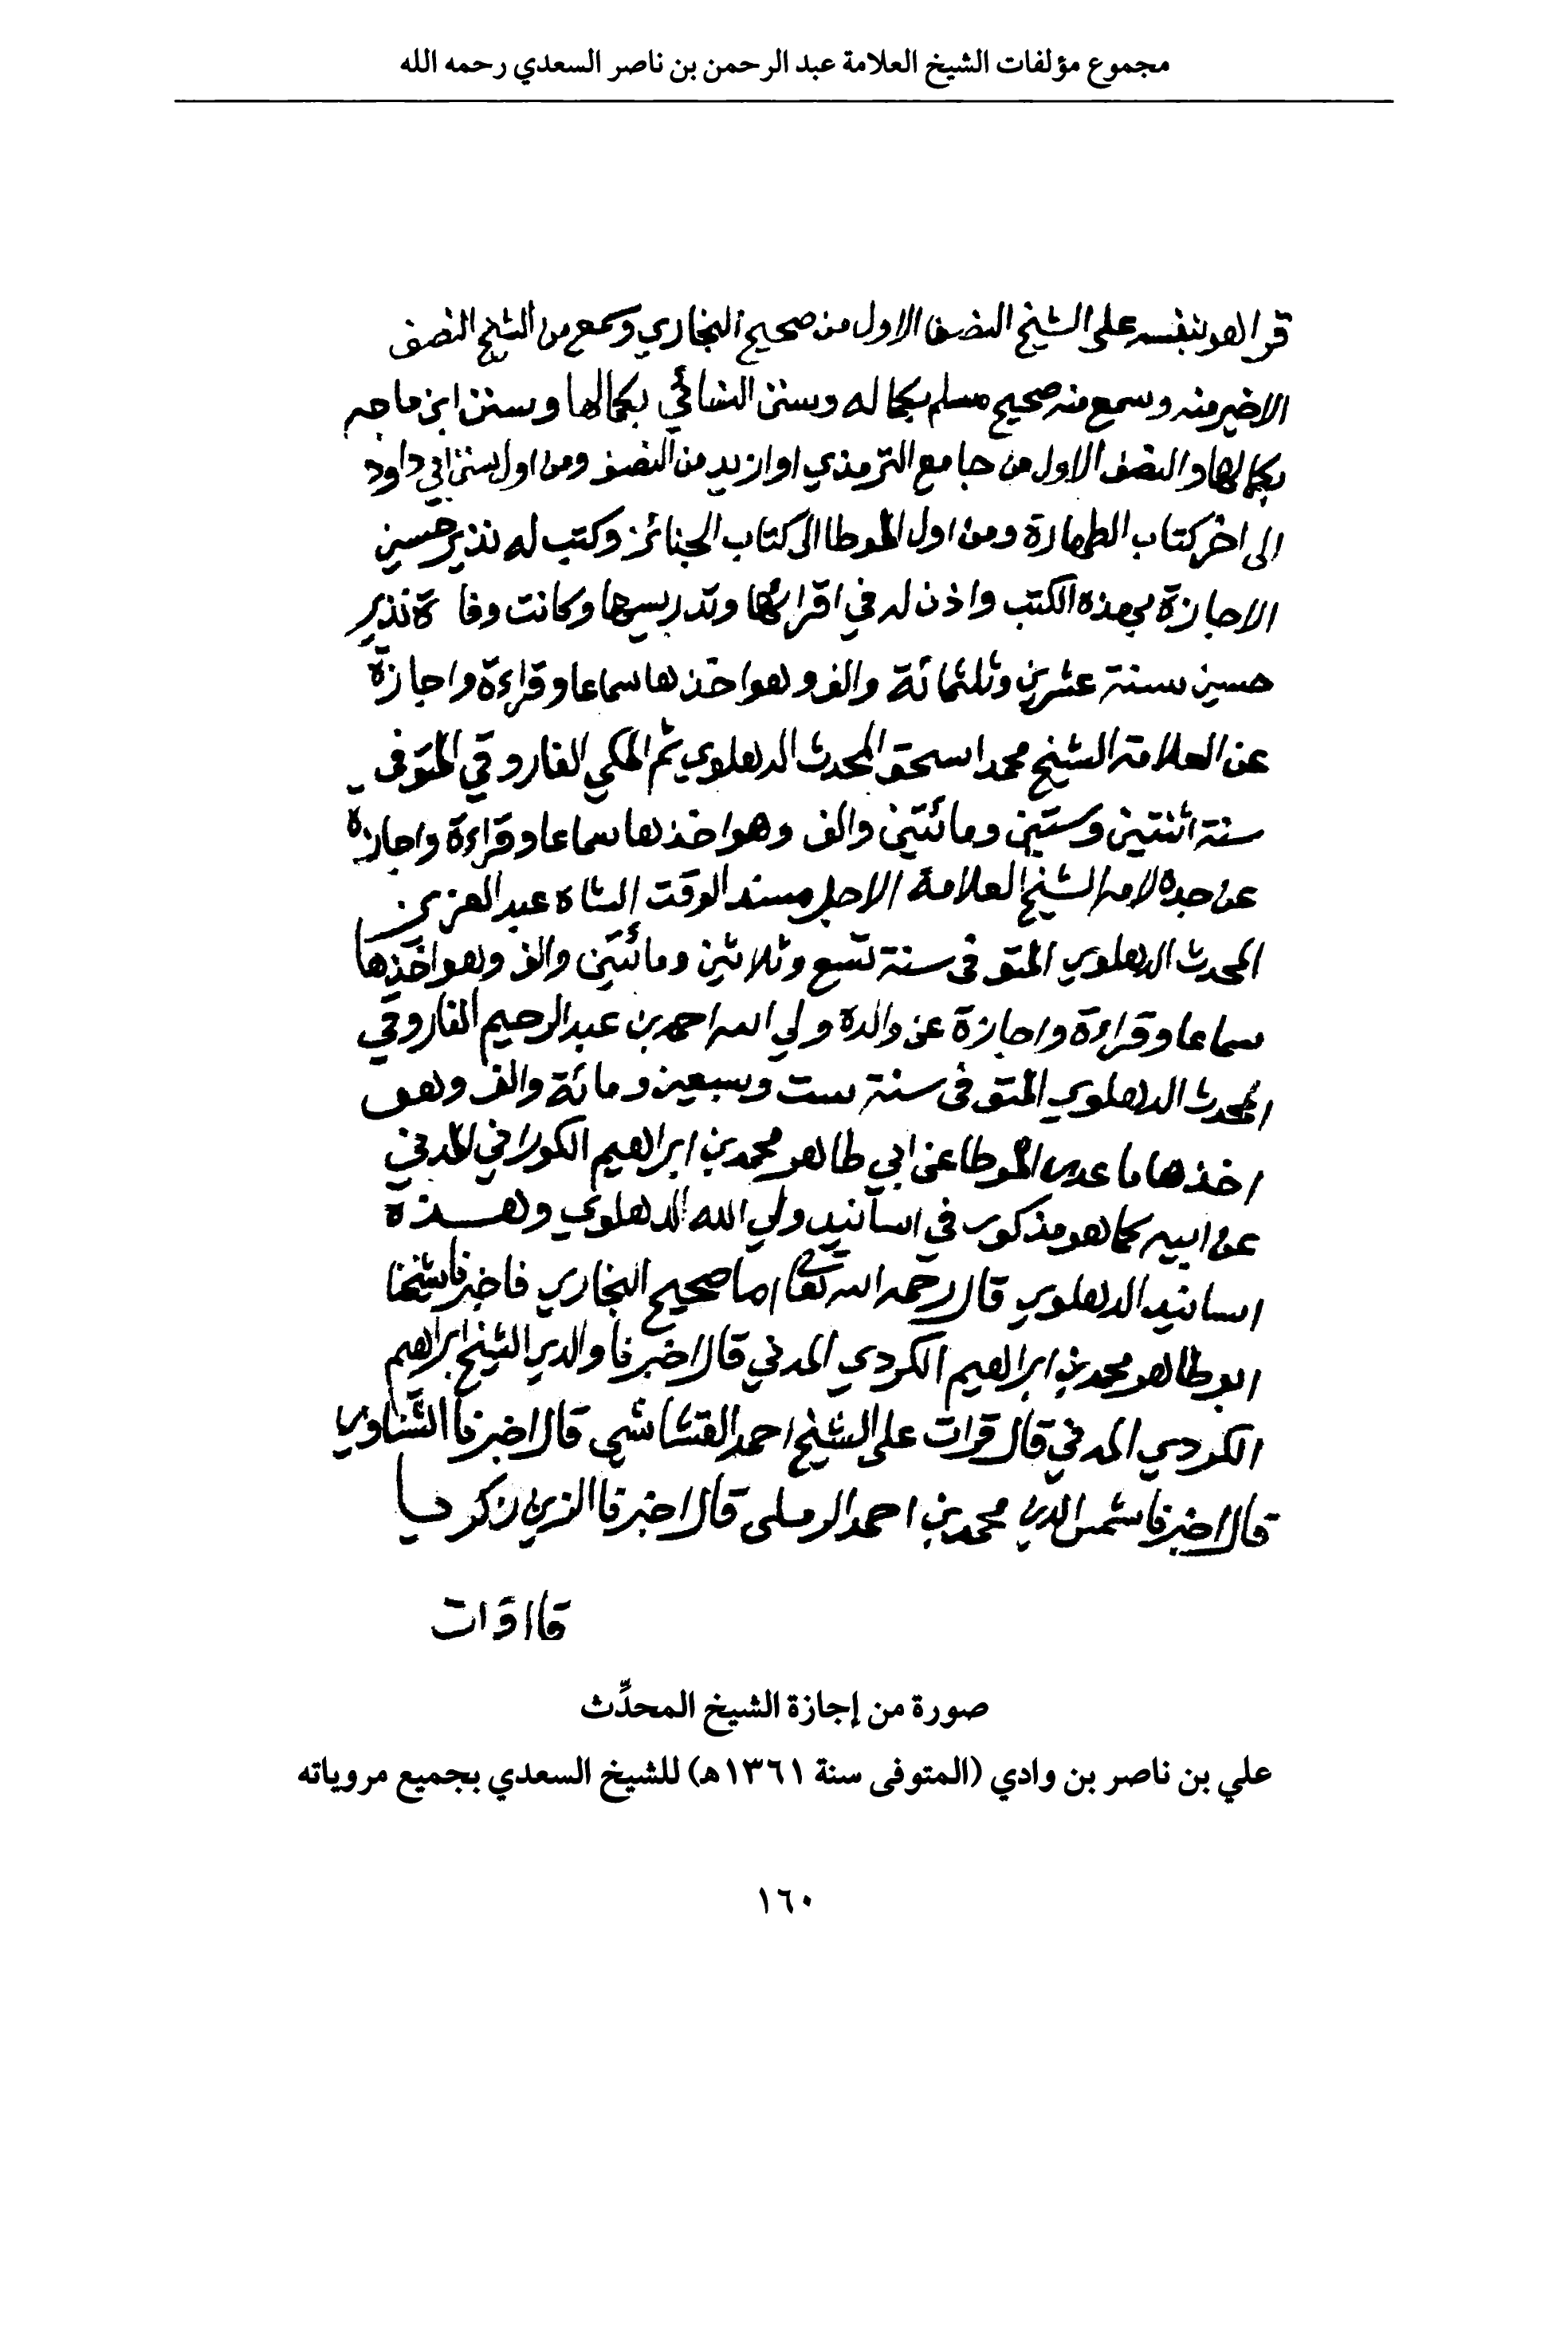 مجموع مؤلفات الشيخ العلامة عبد الرحمن بن ناصر السعدي رحمه الله
قرا هو بنفسه على الشيخ النصف الاول من صحيح البخاري وسمع من الشيخ النصف
الاخير منه وسمع منه صحيح مسلم بكماله وسنن النسائي بكمالها وسنن ابن ماجه
بكمالها والنصف الاول من جامع الترمذي او ازيد من النصف ومن اول سنن ابي داود
الى اخر كتاب الطهارة ومن اول الموطا الى كتاب الجنائز وكتب له نذير حسين
الاجازة بهذه الكتب واذن له في اقرائها وتدريسها وكانت وفاة نذير
حسين سنة عشرين وثلثمائة والف وهو اخذها سماعا وقراءة واجازة
عن العلامة الشيخ محمد اسحق المحدث الدهلوي ثم المكي الفاروقي المتوفي
سنة اثنتين وستين ومائتين والف وهو اخذها سماعا وقراءة واجازة
عن جده لامه الشيخ العلامة الاجل مسند الوقت الشاه عبد العزيز
المحدث الدهلوي المتوفى سنة تسع وثلاثين ومائتين والف وهو اخذها
سماعا وقراءة واجازة عن والده ولي الله احمد بن عبد الرحيم الفاروقي
المحدث الدهلوي المتوفى سنة ست وسبعين ومائة والف وهو
اخذها ما عدى الموطا عن ابي طاهر محمد بن ابراهيم الكوراني المدني
عن ابيه كما هو مذكور في اسانيد ولي الله الدهلوي وهذه
اسانيد الدهلوي قال رحمه الله تعالى اما صحيح البخاري فاخبرنا شيخنا
ابو طاهر محمد بن ابراهيم الكردي المدني قال اخبرنا والدي الشيخ ابراهيم
الكردي المدني قال قرات على الشيخ احمد القشاشي قال اخبرنا الشناوي
قال اخبرنا شمس الدين محمد بن احمد الرملي قال اخبرنا الزين زكريا
صورة من إجازة الشيخ المحدِّث
علي بن ناصر بن وادي (المتوفى سنة ١٣٦١هـ) للشيخ السعدي بجميع مروياته
١٦٠